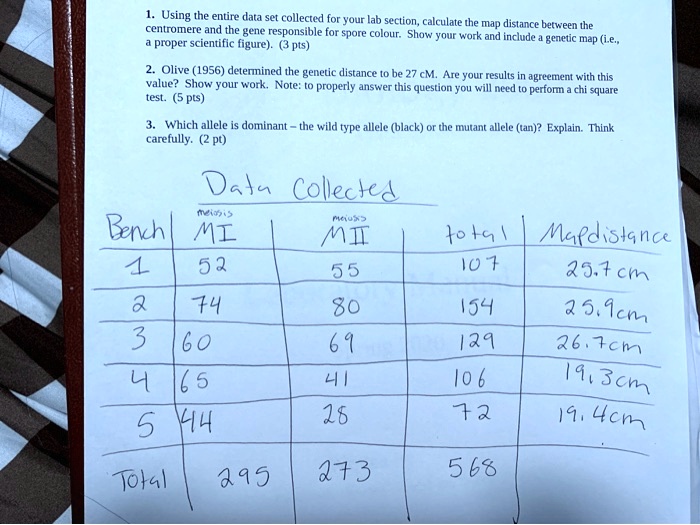 1. Using the entire data set collected for your lab section, calculate the map distance between the
centromere and the gene responsible for spore colour. Show your work and include a genetic map (i.e.,
a proper scientific figure). (3 pts)
2. Olive (1956) determined the genetic distance to be 27 cM. Are your results in agreement with this
value? Show your work. Note: to properly answer this question you will need to perform a chi square
test. (5 pts)
3. Which allele is dominant – the wild type allele (black) or the mutant allele (tan)? Explain. Think
carefully. (2 pt)
Data Collected
meiosis meiosis
Bench MI MII total Mapdistance
1 52 55 107 25.7cm
2 74 80 154 25.9cm
3 60 69 129 26.7cm
4 65 41 106 19.3cm
5 44 28 72 19.4cm
Total 295 273 568